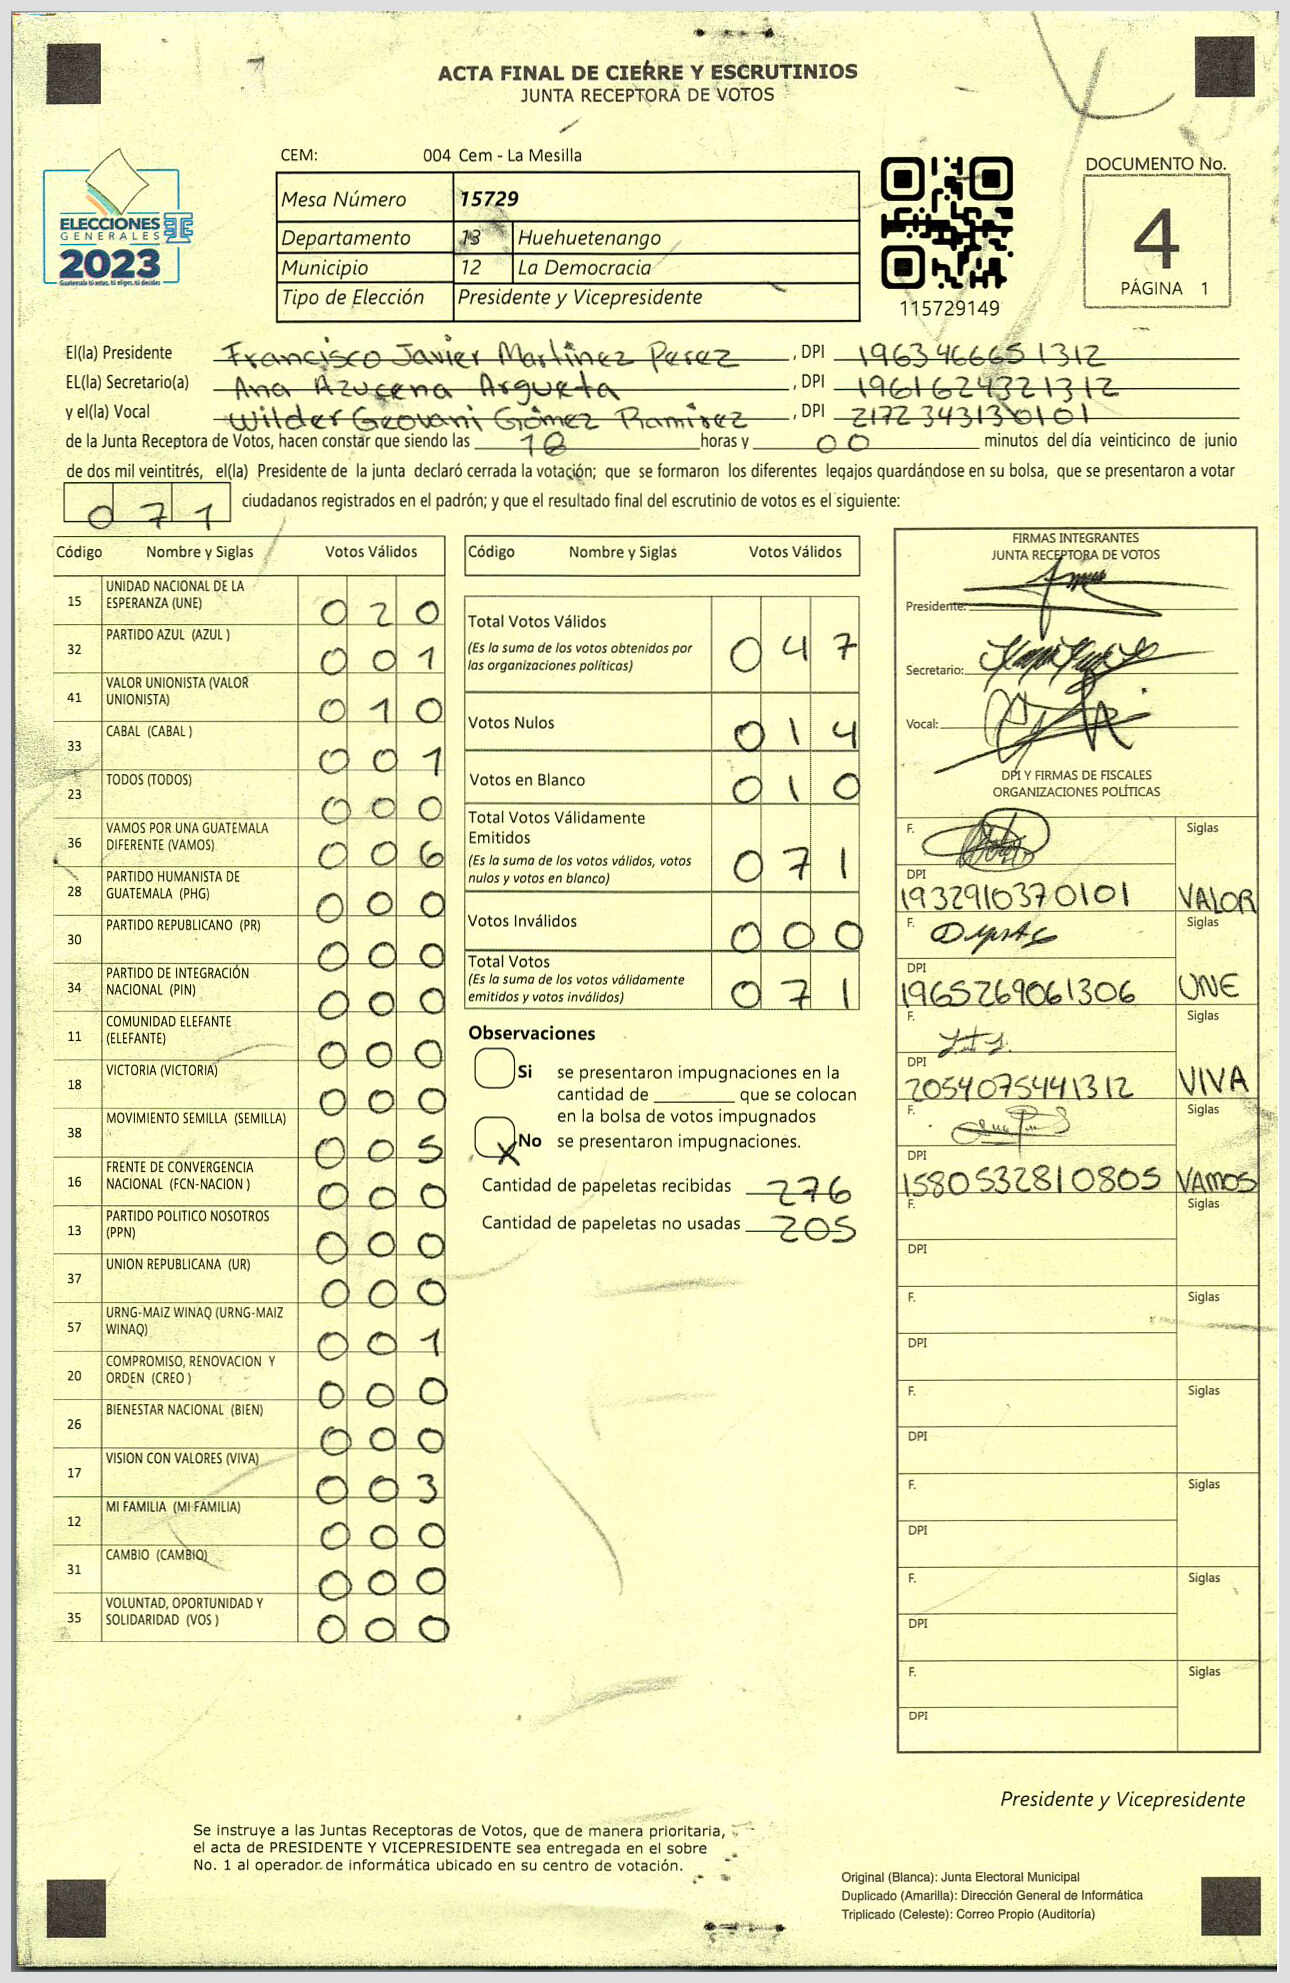 ACTA FINAL DE CIERRE Y ESCRUTINIOS
JUNTA RECEPTORA DE VOTOS
CEM: 004 Cem - La Mesilla
Mesa Número 15729
Departamento 13 Huehuetenango
Municipio 12 La Democracia
Tipo de Elección Presidente y Vicepresidente
ELECCIONES
GENERALES
2023
Guatemala tú votas, tú eliges, tú decides
115729149
DOCUMENTO No.
4
PÁGINA 1
El(la) Presidente Francisco Javier Martinez Perez , DPI 1963466651312
EL(la) Secretario(a) Ana Azucena Argueta , DPI 1961624321312
y el(la) Vocal Wilder Geovani Gómez Ramirez , DPI 2172343130101
de la Junta Receptora de Votos, hacen constar que siendo las 18 horas y 00 minutos del día veinticinco de junio
de dos mil veintitrés, el(la) Presidente de la junta declaró cerrada la votación; que se formaron los diferentes legajos quardándose en su bolsa, que se presentaron a votar
071 ciudadanos registrados en el padrón; y que el resultado final del escrutinio de votos es el siguiente:
Código Nombre y Siglas Votos Válidos
15 UNIDAD NACIONAL DE LA
ESPERANZA (UNE) 020
32 PARTIDO AZUL (AZUL ) 001
41 VALOR UNIONISTA (VALOR
UNIONISTA) 010
33 CABAL (CABAL ) 001
23 TODOS (TODOS) 000
36 VAMOS POR UNA GUATEMALA
DIFERENTE (VAMOS) 006
28 PARTIDO HUMANISTA DE
GUATEMALA (PHG) 000
30 PARTIDO REPUBLICANO (PR) 000
34 PARTIDO DE INTEGRACIÓN
NACIONAL (PIN) 000
11 COMUNIDAD ELEFANTE
(ELEFANTE) 000
18 VICTORIA (VICTORIA) 000
38 MOVIMIENTO SEMILLA (SEMILLA) 005
16 FRENTE DE CONVERGENCIA
NACIONAL (FCN-NACION ) 000
13 PARTIDO POLITICO NOSOTROS
(PPN) 000
37 UNION REPUBLICANA (UR) 000
57 URNG-MAIZ WINAQ (URNG-MAIZ
WINAQ) 001
20 COMPROMISO, RENOVACION Y
ORDEN (CREO ) 000
26 BIENESTAR NACIONAL (BIEN) 000
17 VISION CON VALORES (VIVA) 003
12 MI FAMILIA (MI FAMILIA) 000
31 CAMBIO (CAMBIO) 000
35 VOLUNTAD, OPORTUNIDAD Y
SOLIDARIDAD (VOS ) 000
Código Nombre y Siglas Votos Válidos
Total Votos Válidos 047
(Es la suma de los votos obtenidos por
las organizaciones políticas)
Votos Nulos 014
Votos en Blanco 010
Total Votos Válidamente
Emitidos 071
(Es la suma de los votos válidos, votos
nulos y votos en blanco)
Votos Inválidos 000
Total Votos 071
(Es la suma de los votos válidamente
emitidos y votos inválidos)
Observaciones
Si se presentaron impugnaciones en la
cantidad de ________ que se colocan
en la bolsa de votos impugnados
X No se presentaron impugnaciones.
Cantidad de papeletas recibidas 276
Cantidad de papeletas no usadas 205
FIRMAS INTEGRANTES
JUNTA RECEPTORA DE VOTOS
Presidente:
Secretario:
Vocal:
DPI Y FIRMAS DE FISCALES
ORGANIZACIONES POLÍTICAS
F. Siglas
DPI
1932910370101 VALOR
F. Siglas
DPI
1965269061306 UNE
F. Siglas
DPI
2054075441312 VIVA
F. Siglas
DPI
1580532810805 VAMOS
F. Siglas
DPI
F. Siglas
DPI
F. Siglas
DPI
F. Siglas
DPI
F. Siglas
DPI
F. Siglas
DPI
Presidente y Vicepresidente
Se instruye a las Juntas Receptoras de Votos, que de manera prioritaria,
el acta de PRESIDENTE Y VICEPRESIDENTE sea entregada en el sobre
No. 1 al operador de informática ubicado en su centro de votación.
Original (Blanca): Junta Electoral Municipal
Duplicado (Amarilla): Dirección General de Informática
Triplicado (Celeste): Correo Propio (Auditoría)